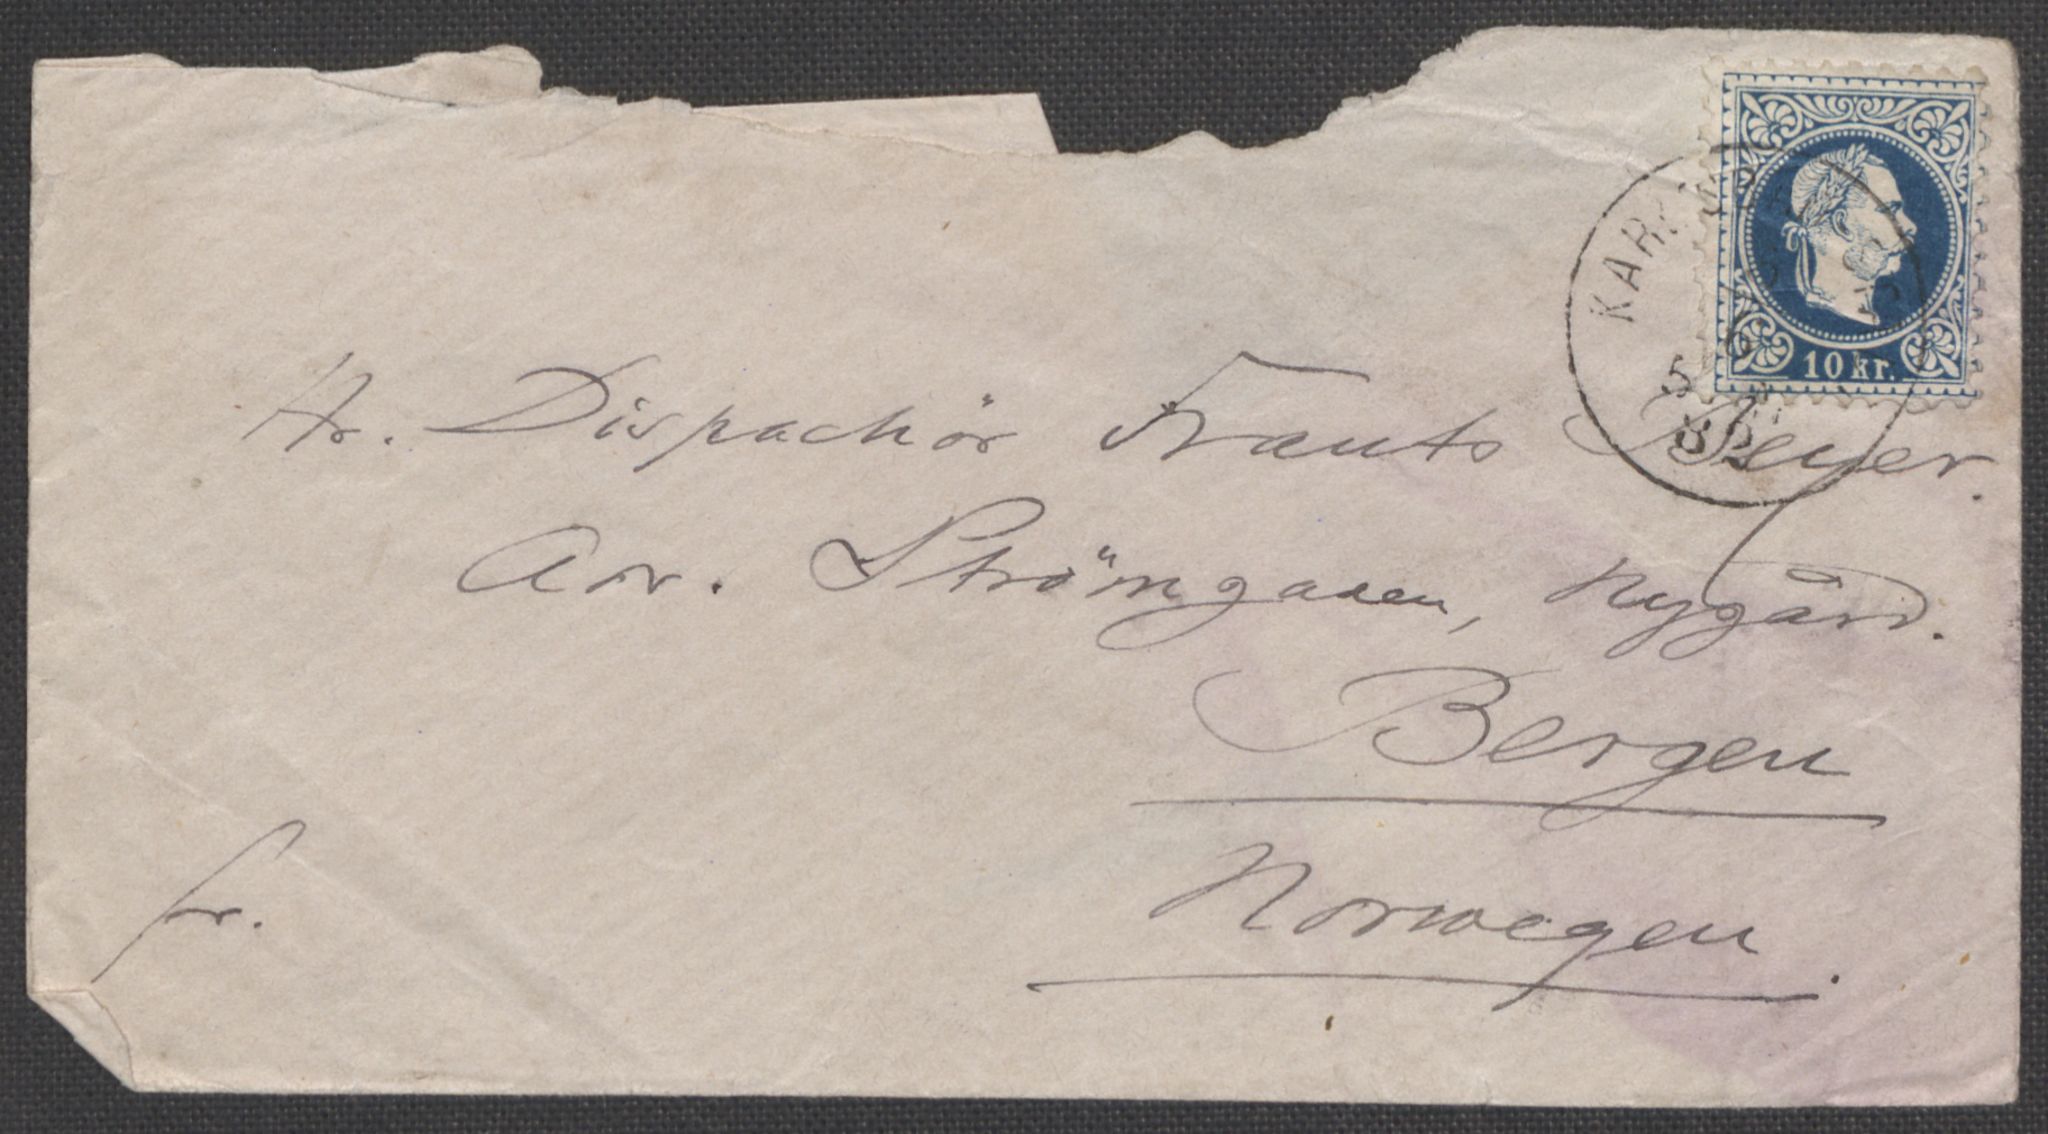 10 kr.
5
82
Hr. Dispachör Frants Beyer.
Adr. Strömgaden, Nygård.
Bergen
Norwegen.
fr.